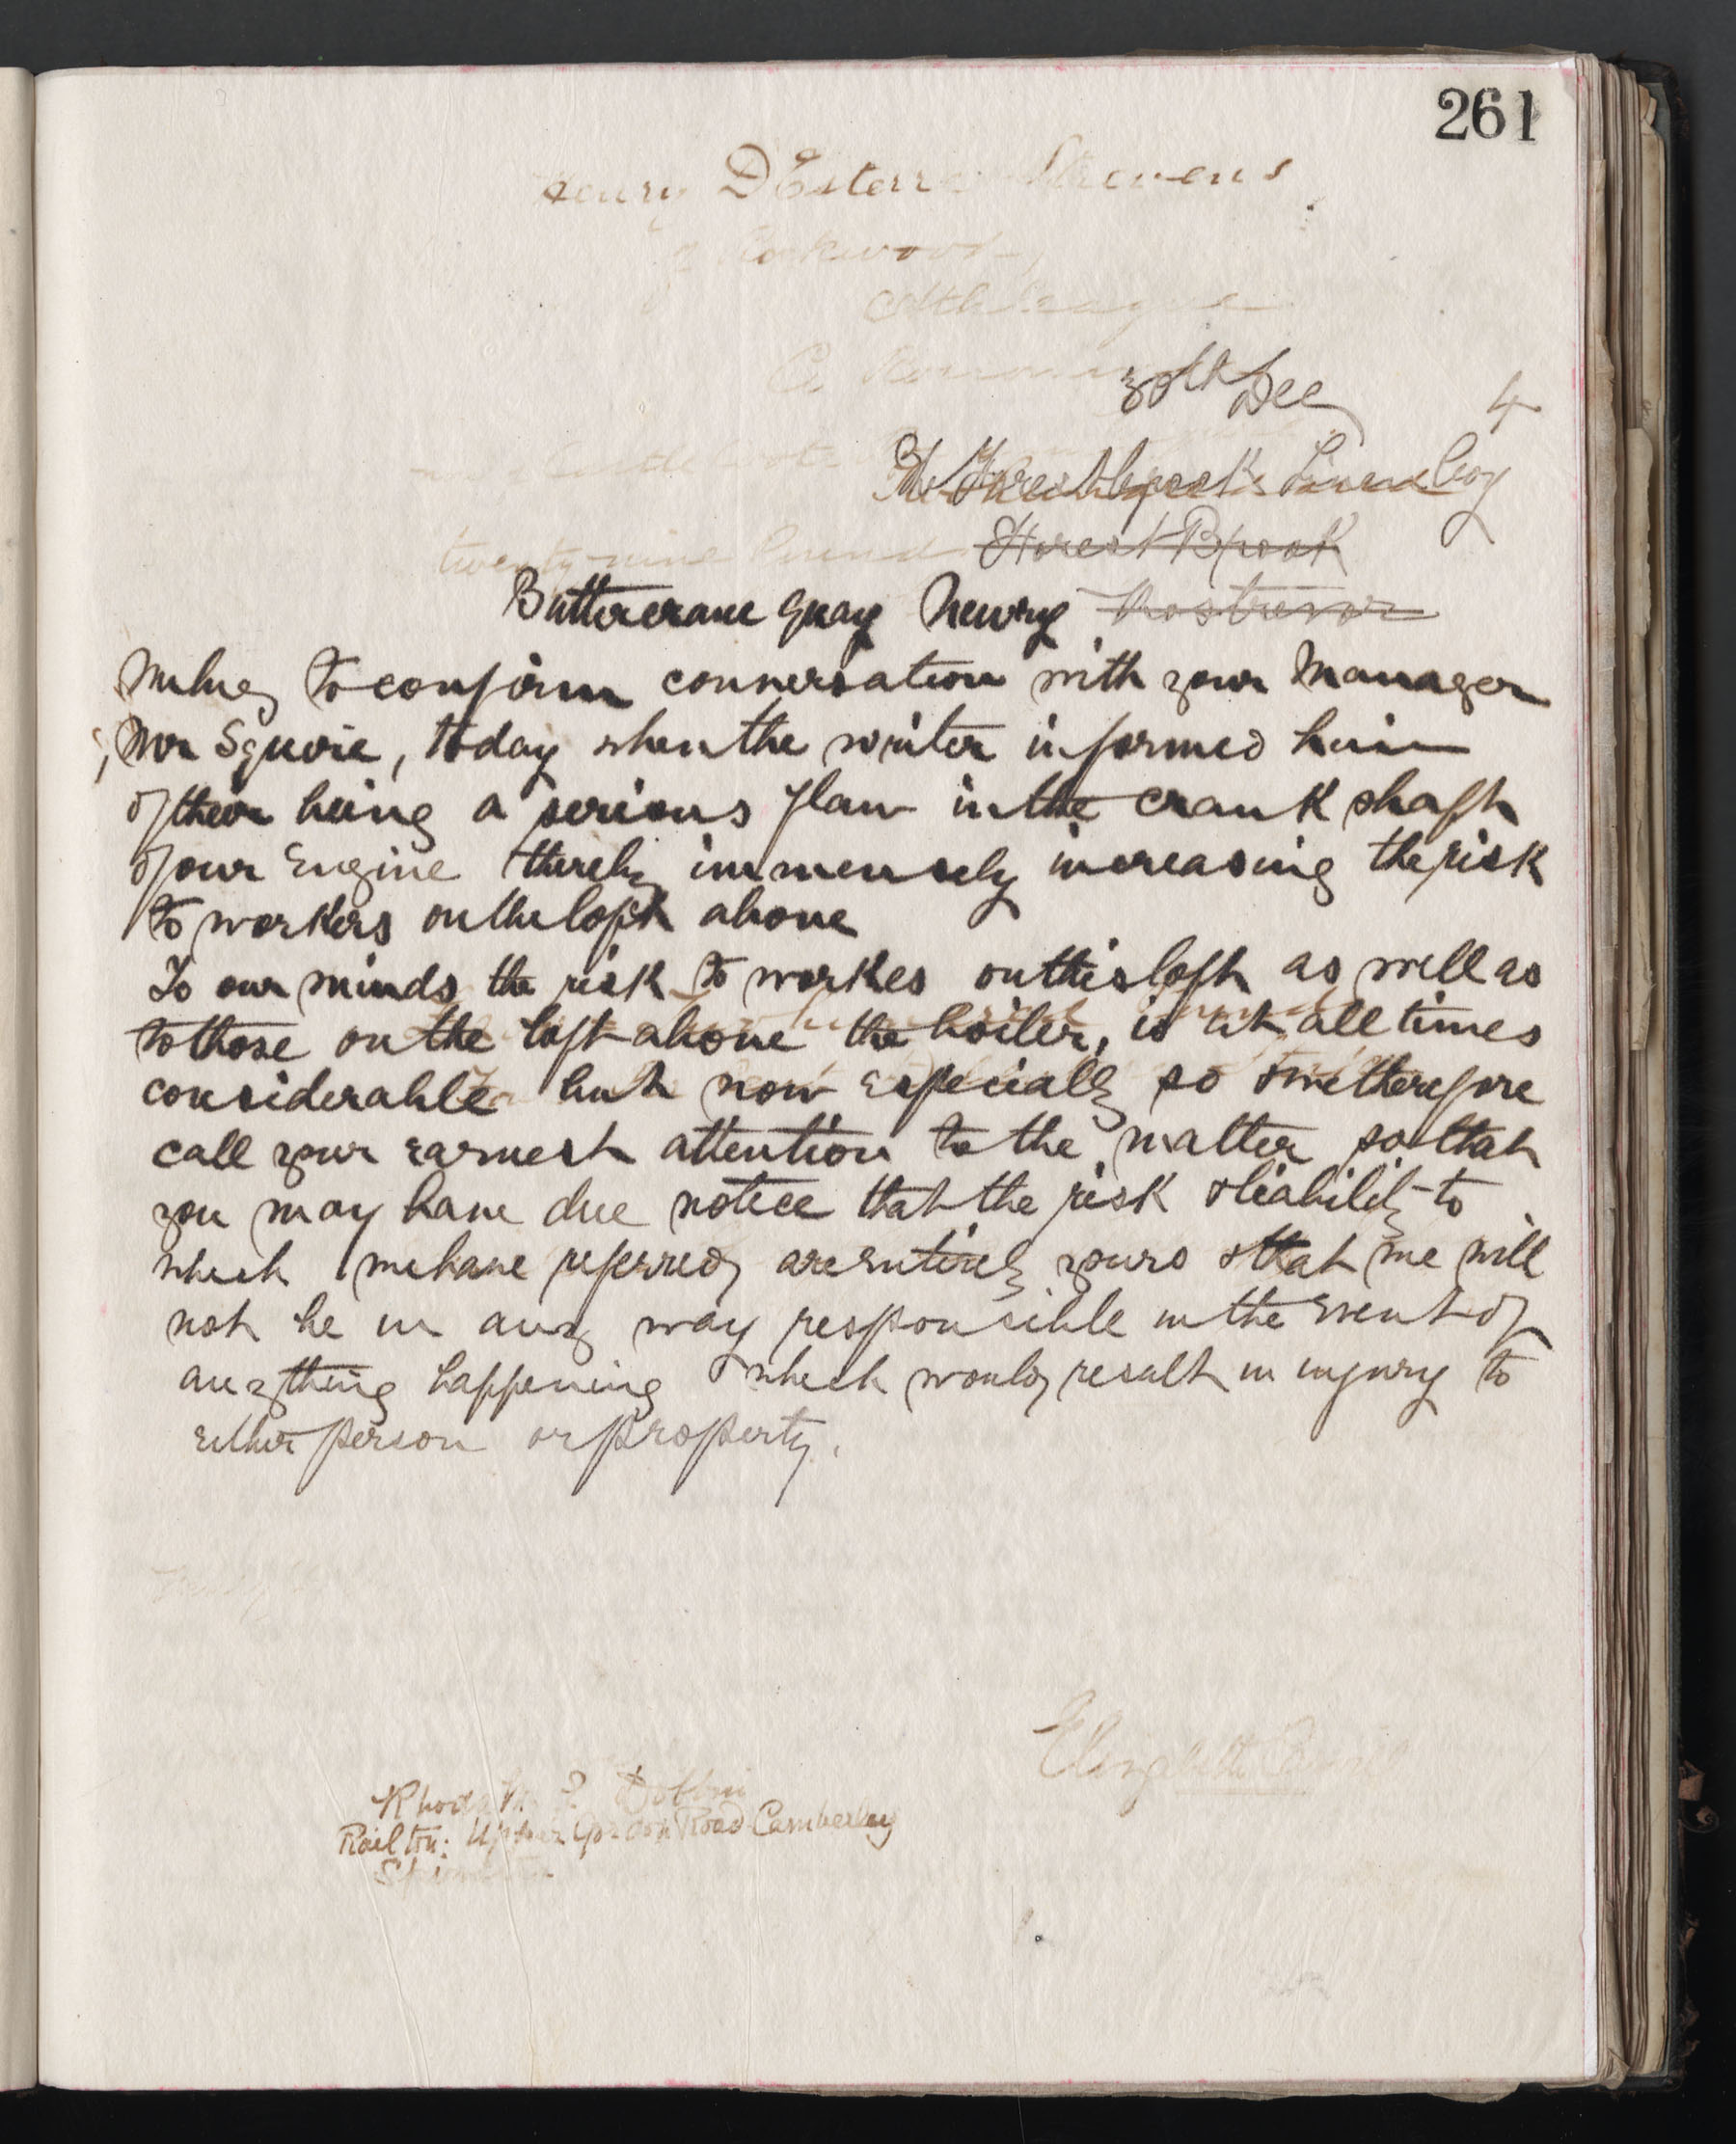 261
Henry D'Esterre Stevens
of Corkwood,
Athleague
Co.
30th Dec 4
The Forestbrook Linen Coy
Forest Brook
twenty nine
Buttercrane Quay Newry Rostrevor
We beg to confirm conversation with your Manager
Mr Squire, today when the writer informed him
of their being a serious flaw in the crank shaft
of our Engine thereby immensely increasing the risk
to workers on the loft above
To our minds the risk to workes on this loft as well as
to those on the loft above the boiler, is at all times
considerable but now especially so & we therefore
call your earnest attention to the matter so that
you may have due notice that the risk & liability to
which we have referred, are entirely yours & that we will
not be in any way responsible in the event of
anything happening which would result in injury to
either person or property.
Elizabeth
Rhoda Dobbin
Railton: Upper Gordon Road Camberley
Spinster